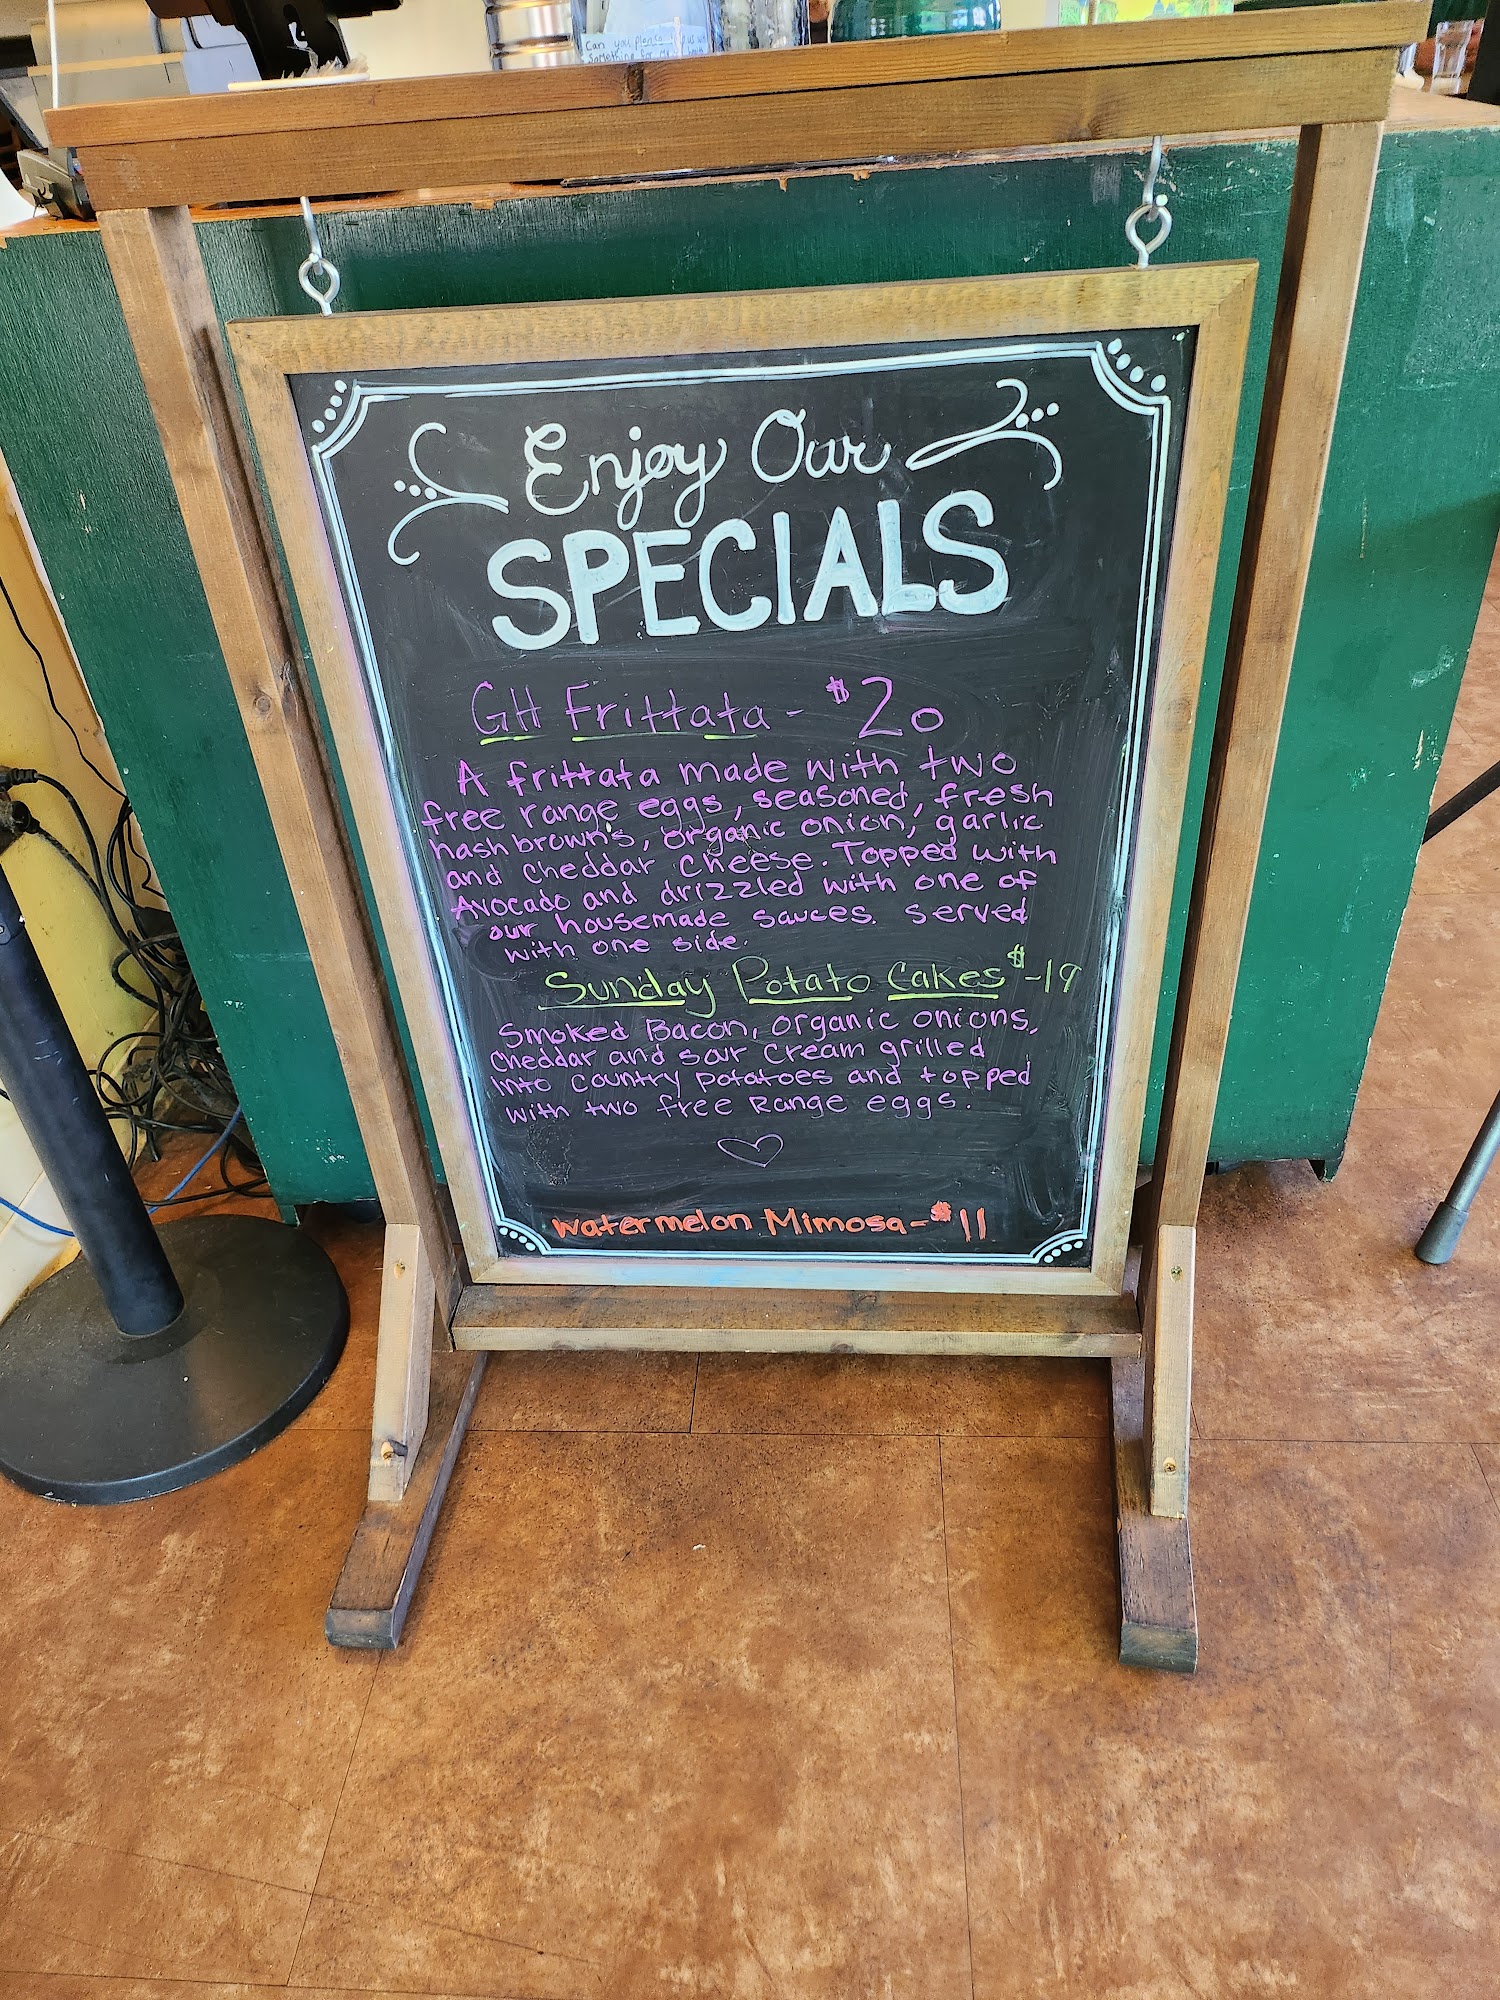 Can you
Something for
Enjoy Our
SPECIALS
GH Frittata - $20
A frittata made with two
free range eggs, seasoned, fresh
hashbrowns, organic onion, garlic
and cheddar cheese. Topped with
Avocado and drizzled with one of
our housemade sauces. served
with one side.
Sunday Potato Cakes $-19
Smoked Bacon, organic onions,
cheddar and sour cream grilled
into country potatoes and topped
with two free Range eggs.
Watermelon Mimosa - $11